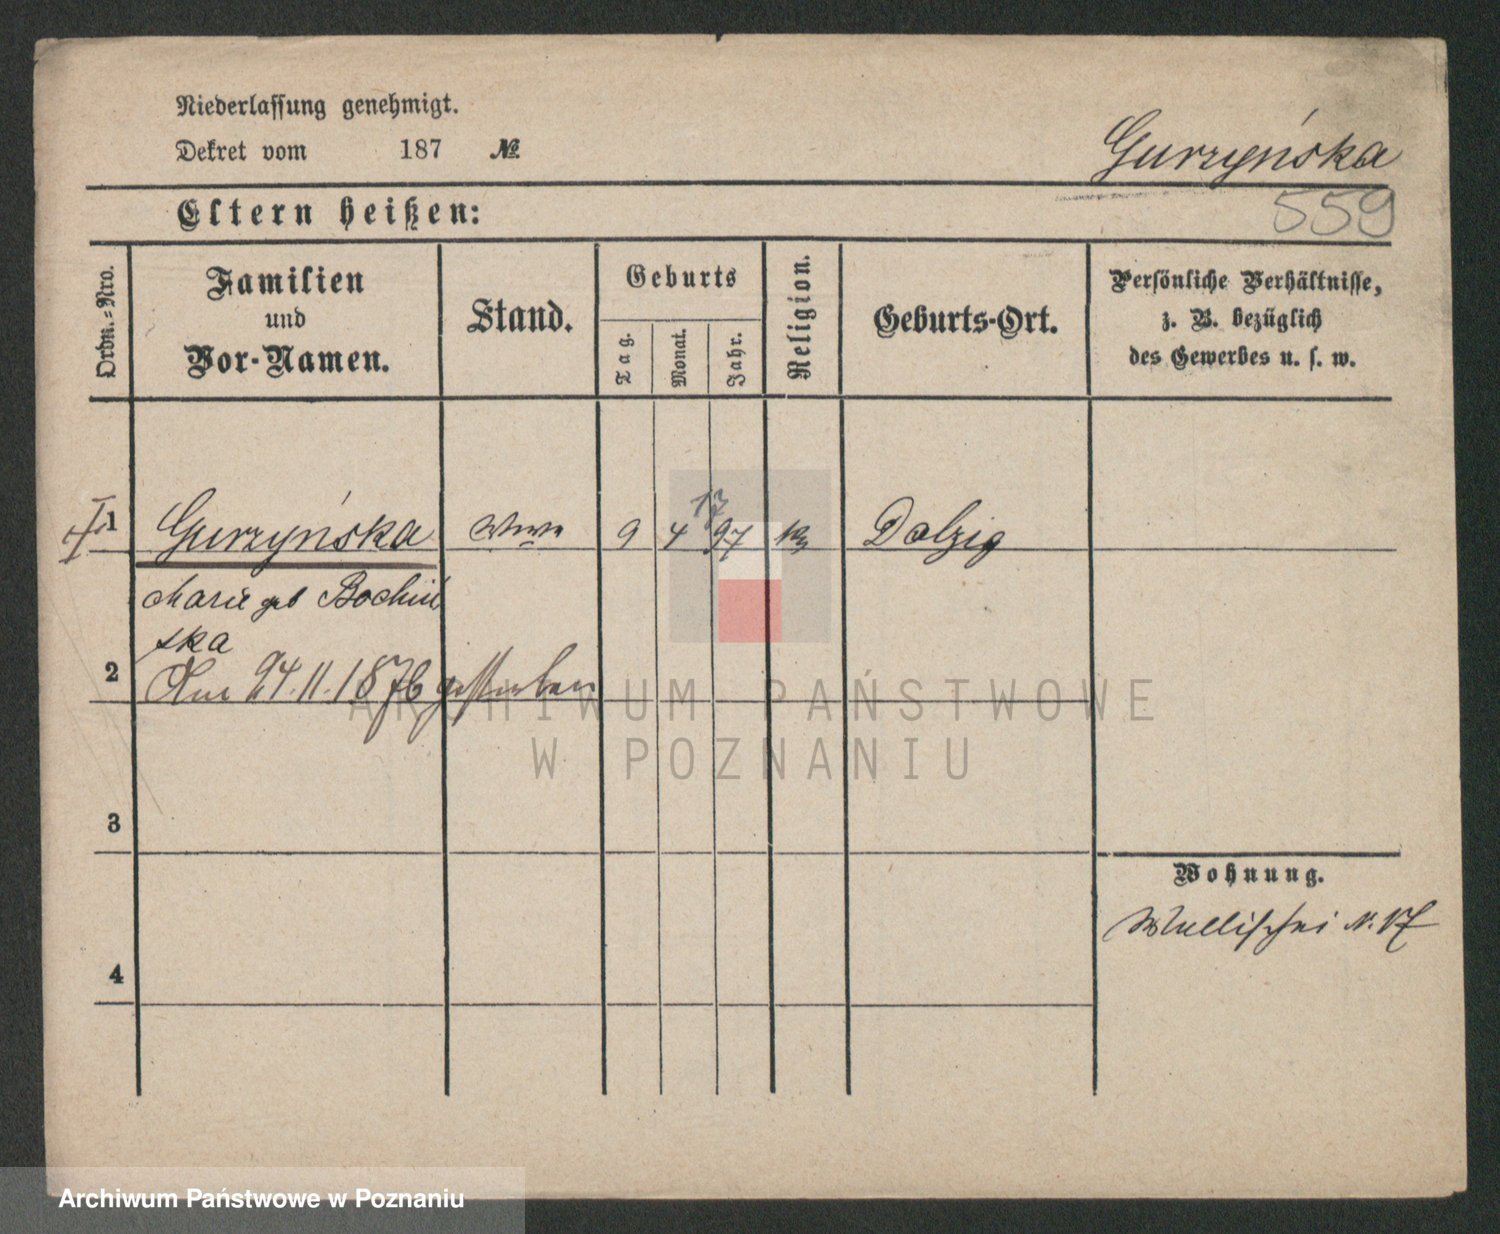 Niederlassung genehmigt.
Dekret vom 187 №
Gurzyńska
559
Eltern heißen:
Ordn.-Nro.
Familien und Vor-Namen.
Stand.
Geburts
Tag.
Monat.
Jahr.
Religion.
Geburts-Ort.
Persönliche Verhältnisse,
z. B. bezüglich
des Gewerbes u. s. w.
1 Gurzyńska Wwe 9 4 97 Dolzig
17
Marie geb Bochiń
ska
2 Am 24.11.1876 gestorben
3
4
Wohnung.
Wallischei N. 17
ARCHIWUM PAŃSTWOWE
W POZNANIU
Archiwum Państwowe w Poznaniu